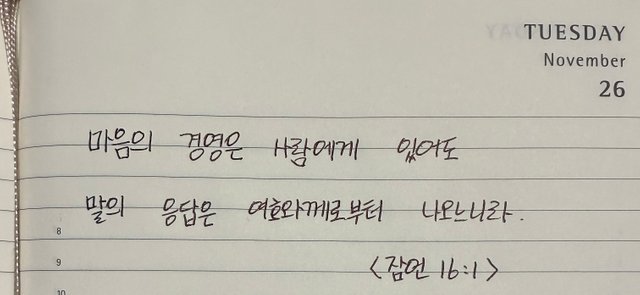 TUESDAY
November
26
마음의 경영은 사람에게 있어도
말의 응답은 여호와께로부터 나오느니라.
8
<잠언 16:1>
9
10